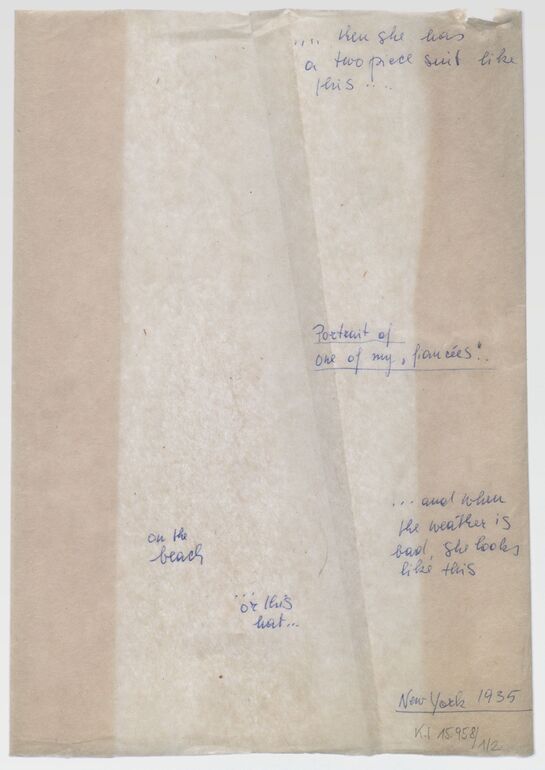 .... then she has
a two piece suit like
this ....
Portrait of
one of my „fiancées".
... and when
the weather is
bad, she looks
like this
on the
beach
... or this
hat...
New York 1935
K.I 15.958/
1/2